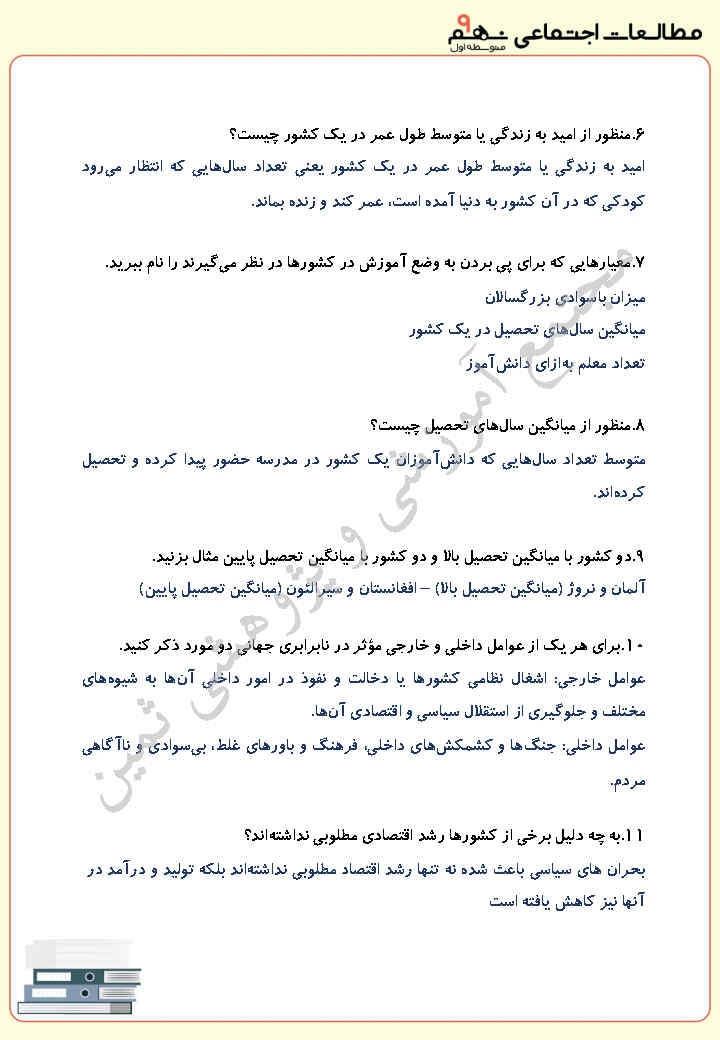 مطالعات اجتماعی نهم ۹
متوسطه اول
۶.منظور از امید به زندگی یا متوسط طول عمر در یک کشور چیست؟
امید به زندگی یا متوسط طول عمر در یک کشور یعنی تعداد سال‌هایی که انتظار می‌رود
کودکی که در آن کشور به دنیا آمده است، عمر کند و زنده بماند.
۷.معیارهایی که برای پی بردن به وضع آموزش در کشورها در نظر می‌گیرند را نام ببرید.
میزان باسوادی بزرگسالان
میانگین سال‌های تحصیل در یک کشور
تعداد معلم به‌ازای دانش‌آموز
۸.منظور از میانگین سال‌های تحصیل چیست؟
متوسط تعداد سال‌هایی که دانش‌آموزان یک کشور در مدرسه حضور پیدا کرده و تحصیل
کرده‌اند.
۹.دو کشور با میانگین تحصیل بالا و دو کشور با میانگین تحصیل پایین مثال بزنید.
آلمان و نروژ (میانگین تحصیل بالا) – افغانستان و سیرالئون (میانگین تحصیل پایین)
۱۰.برای هر یک از عوامل داخلی و خارجی مؤثر در نابرابری جهانی دو مورد ذکر کنید.
عوامل خارجی: اشغال نظامی کشورها یا دخالت و نفوذ در امور داخلی آن‌ها به شیوه‌های
مختلف و جلوگیری از استقلال سیاسی و اقتصادی آن‌ها.
عوامل داخلی: جنگ‌ها و کشمکش‌های داخلی، فرهنگ و باورهای غلط، بی‌سوادی و ناآگاهی
مردم.
۱۱.به چه دلیل برخی از کشورها رشد اقتصادی مطلوبی نداشته‌اند؟
بحران های سیاسی باعث شده نه تنها رشد اقتصاد مطلوبی نداشته‌اند بلکه تولید و درآمد در
آنها نیز کاهش یافته است
مجتمع آموزشی و پژوهشی ثمین